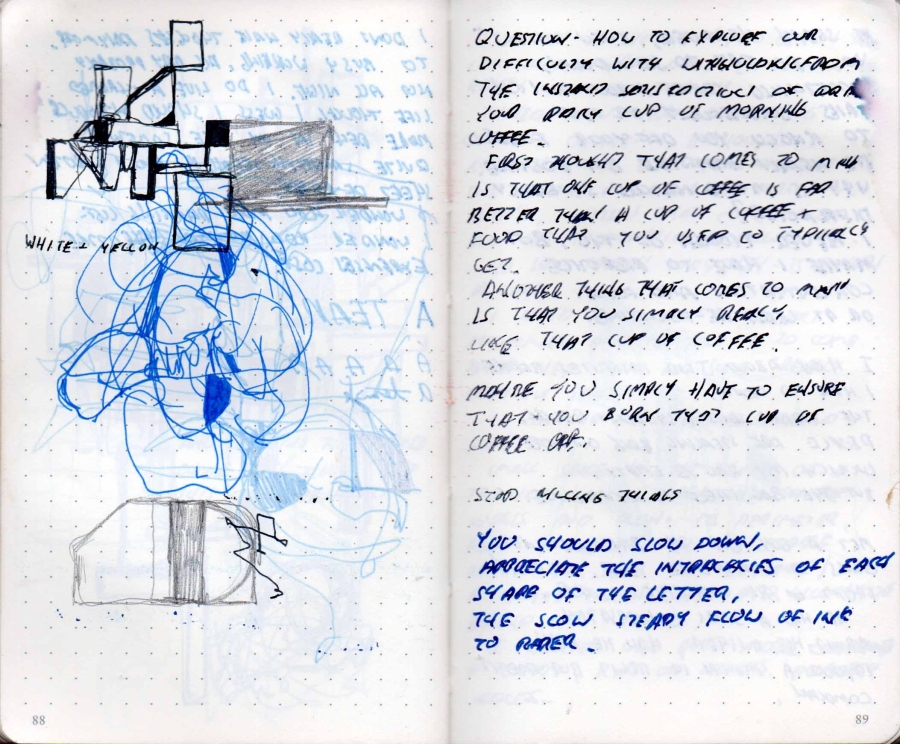 WHITE + YELLOW
88
QUESTION - HOW TO EXPLORE OUR
DIFFICULTY WITH WITHHOLDING FROM
THE INSTANT SATISFACTION OF
YOUR DAILY CUP OF MORNING
COFFEE.
FIRST THOUGHT THAT COMES TO MIND
IS THAT ONE CUP OF COFFEE IS FAR
BETTER THAN A CUP OF COFFEE +
FOOD THAT YOU USED TO TYPICALLY
GET.
ANOTHER THING THAT COMES TO MIND
IS THAT YOU SIMPLY REALLY
LIKE THAT CUP OF COFFEE.
MAYBE YOU SIMPLY HAVE TO ENSURE
THAT YOU BURN THAT CUP OF
COFFEE OFF.
STOP THINGS
YOU SHOULD SLOW DOWN,
APPRECIATE THE INTRACACIES OF EACH
SHAPE OF THE LETTER,
THE SLOW STEADY FLOW OF INK
TO PAPER.
89